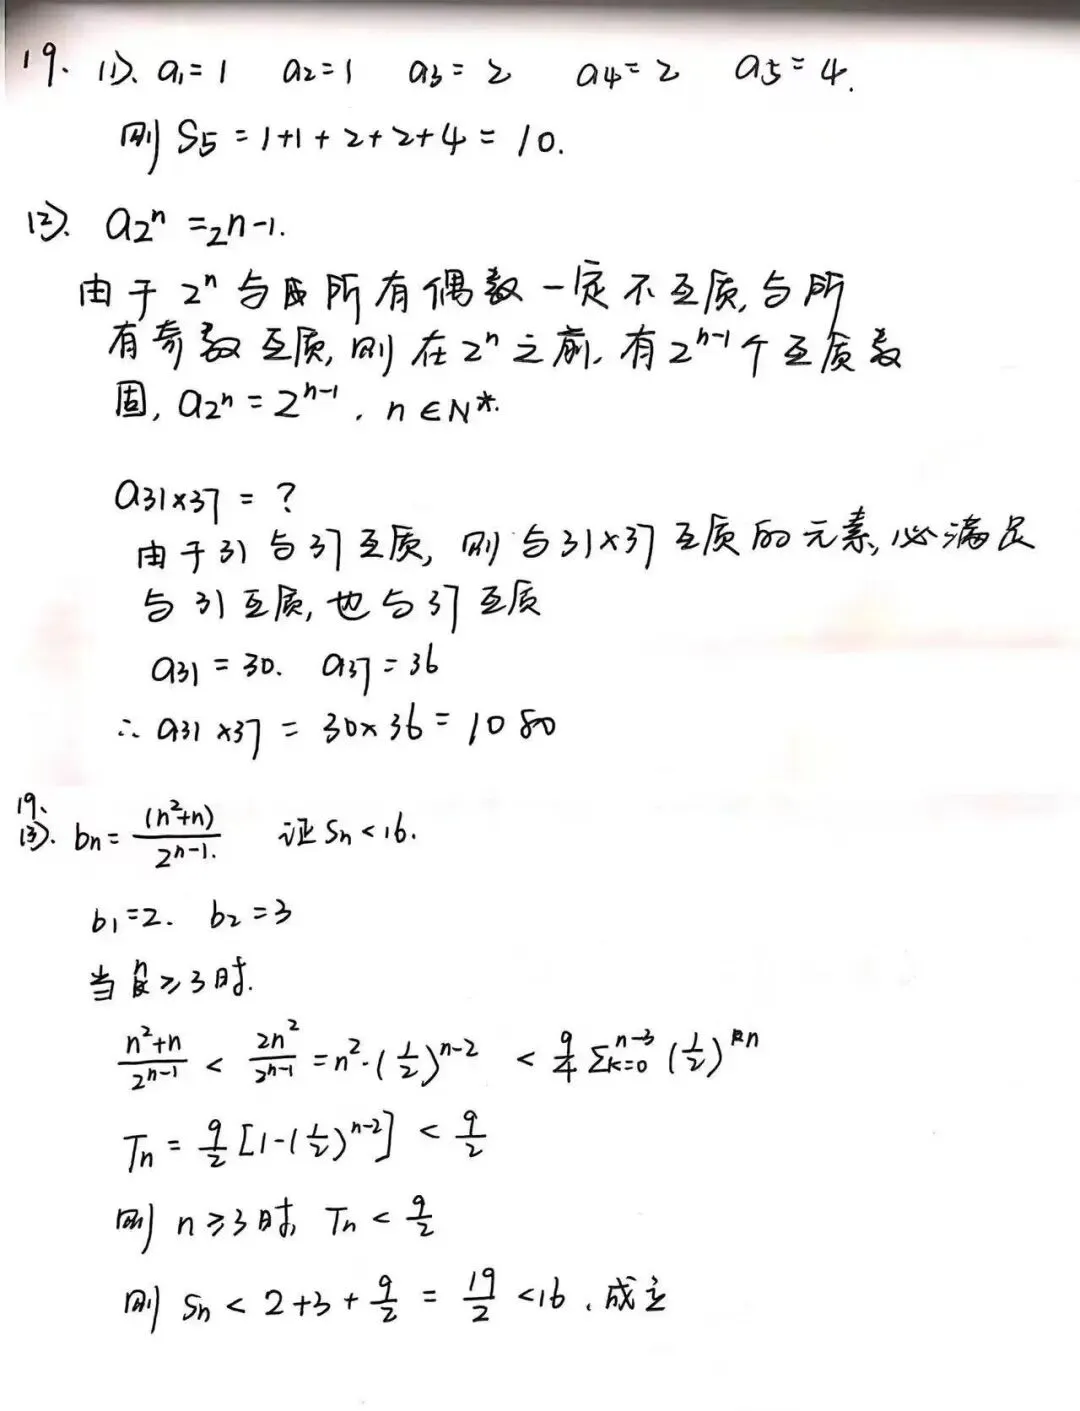 19. (1). a₁=1 a₂=1 a₃=2 a₄=2 a₅=4.
则 S₅=1+1+2+2+4=10.
(2). a2ⁿ =2n-1.
由于 2ⁿ 与所有偶数一定不互质,与所
有奇数互质,则在2ⁿ之前,有2ⁿ⁻¹个互质数
固, a2ⁿ=2ⁿ⁻¹, n∈N*.
a31×37 = ?
由于31与37互质, 则与31×37互质的元素,必满足
与31互质,也与37互质
a31=30. a37=36
∴ a31×37 = 30×36=1080
19.
(3). bn= (n²+n)/2ⁿ⁻¹. 证Sn<16.
b₁=2. b₂=3
当n≥3时.
(n²+n)/2ⁿ⁻¹ < 2n²/2ⁿ⁻¹ =n²·(1/2)ⁿ⁻² < 9/4 Σₖ₌₀ⁿ⁻³ (1/2)ⁿ
Tn = 9/2 [1-(1/2)ⁿ⁻²] < 9/2
则 n≥3时, Tn < 9/2
则 Sn < 2+3+ 9/2 = 19/2 <16, 成立